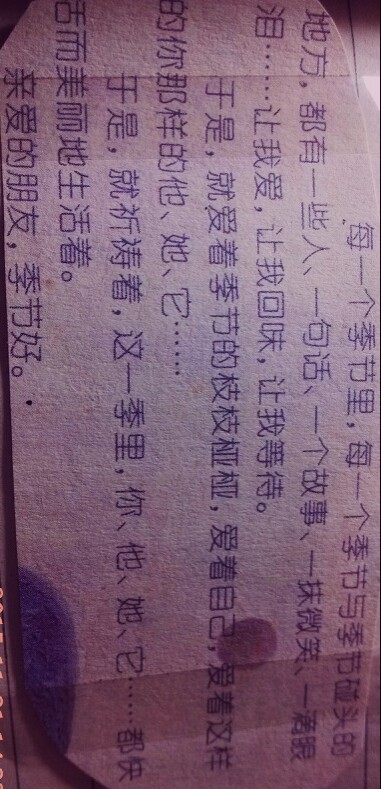 每一个季节里，每一个季节与季节碰头的
地方，都有一些人、一句话、一个故事、一抹微笑、一滴眼
泪……让我爱，让我回味，让我等待。
于是，就爱着季节的枝枝桠桠，爱着自己，爱着这样
的你那样的他、她、它……
于是，就祈祷着，这一季里，你、他、她、它……都快
活而美丽地生活着。
亲爱的朋友，季节好。